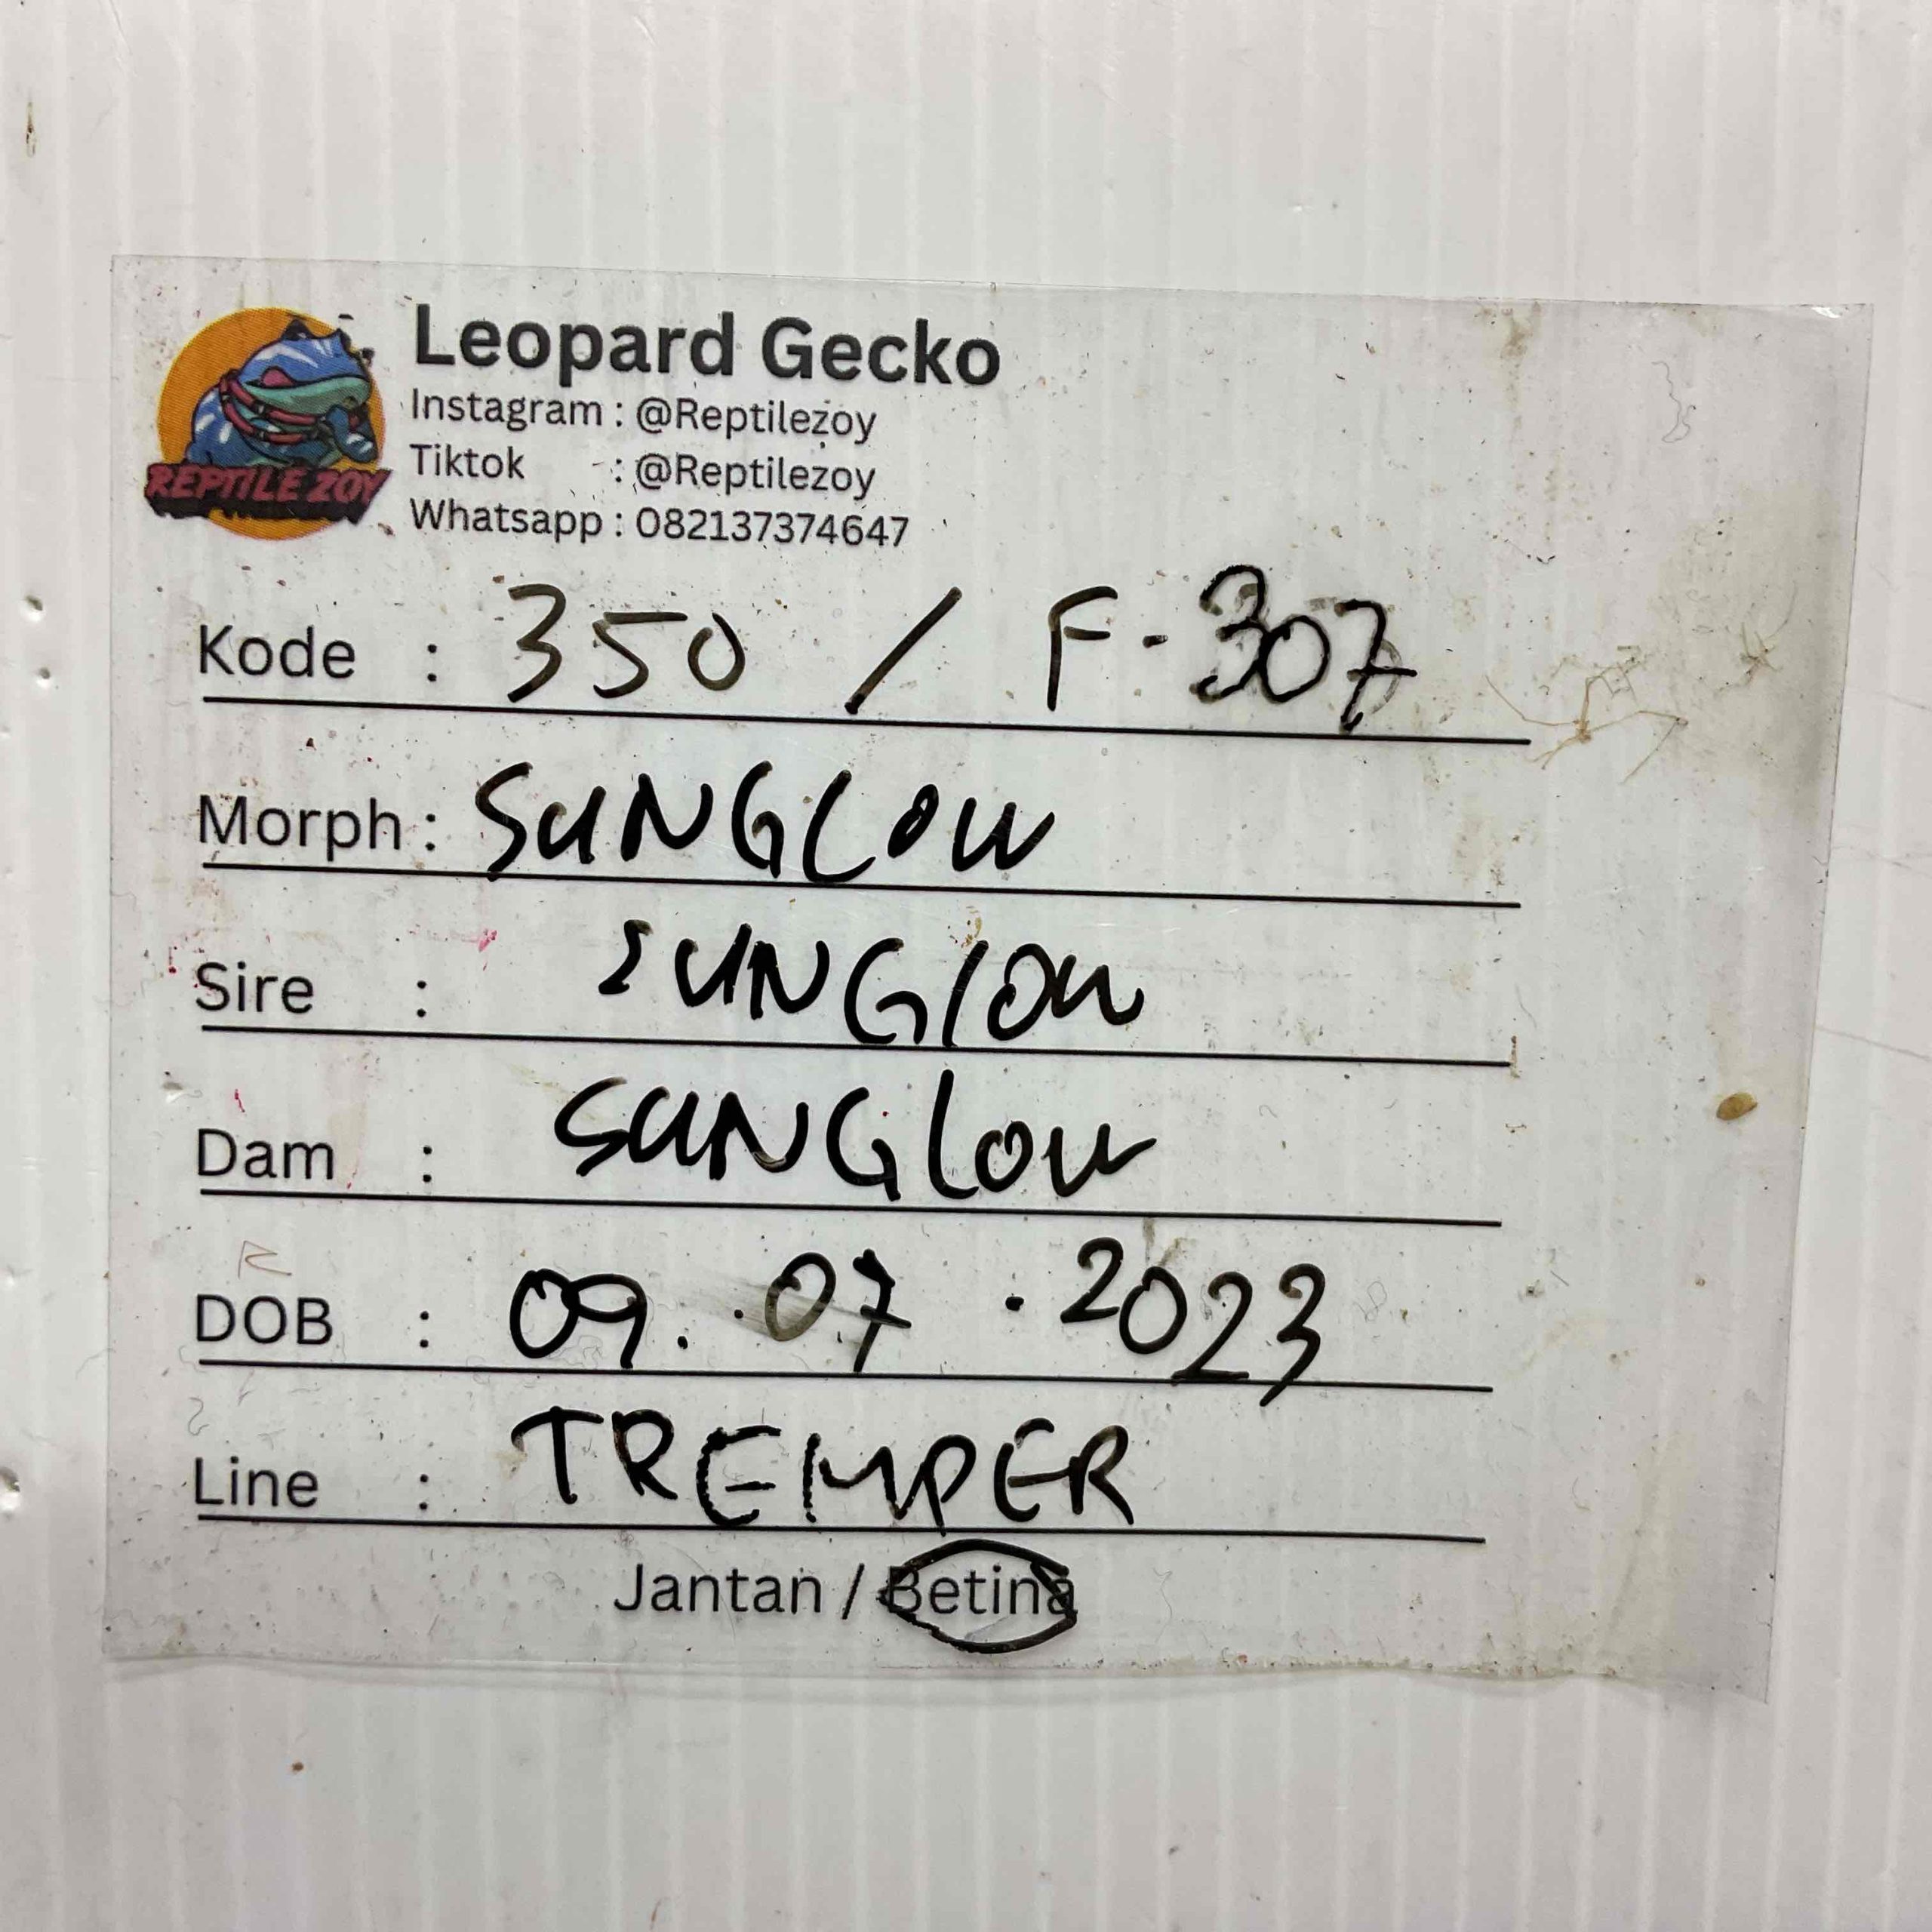 REPTILE ZOY
Leopard Gecko
Instagram : @Reptilezoy
Tiktok : @Reptilezoy
Whatsapp : 082137374647
Kode : 350 / F-307
Morph : SUNGLOW
Sire : SUNGlOW
Dam : SUNGlOW
DOB : 09.07.2023
Line : TREMPER
Jantan / Betina